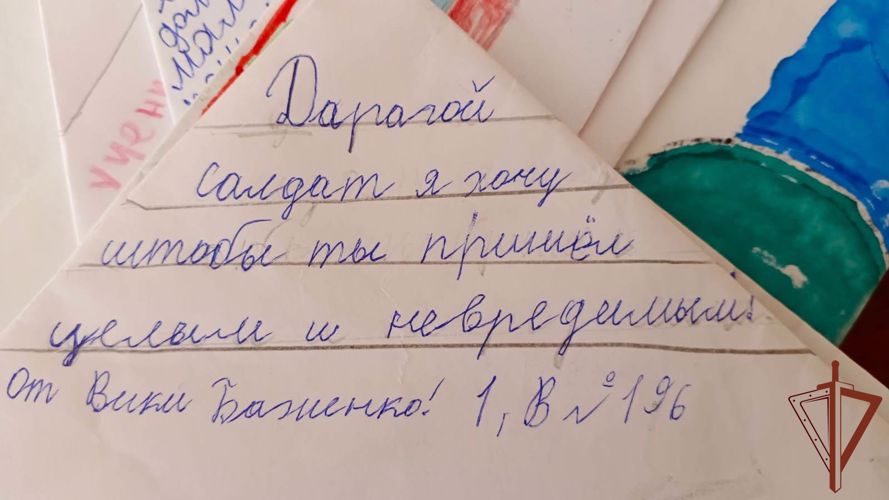 Учени
Дарагой
салдат я хочу
штобы ты пришёл
целым и невредимым!
От Вики Баженко! 1, В №196